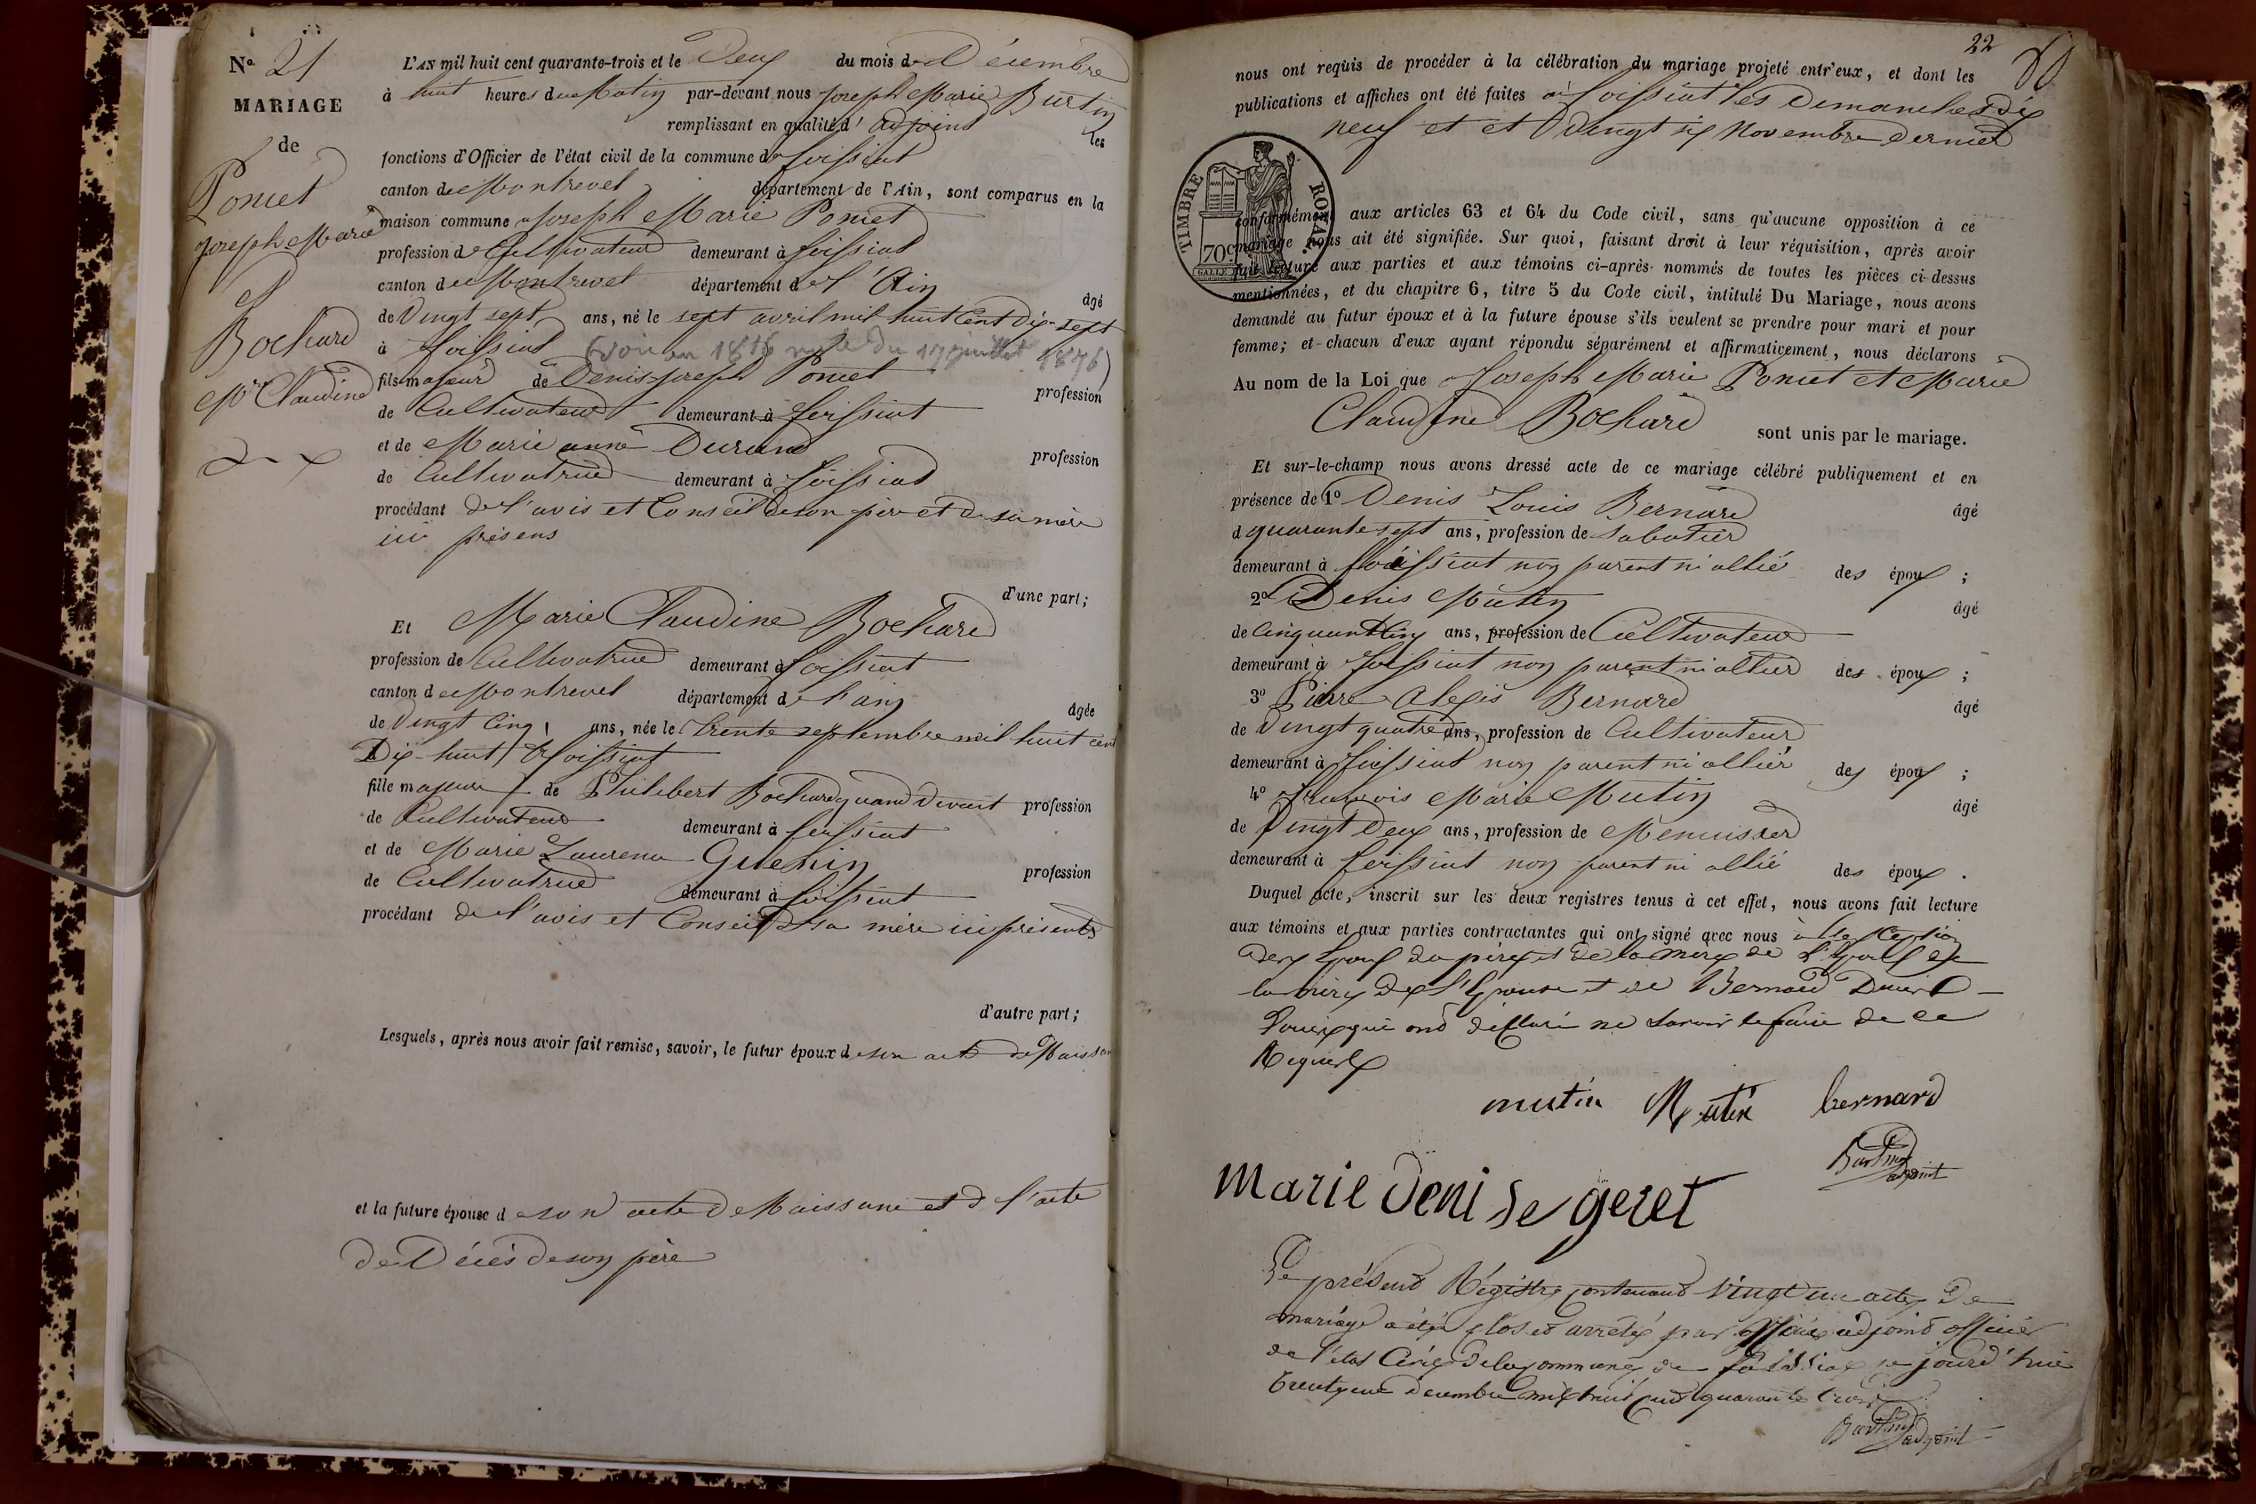 N° 21
MARIAGE
de
Poncet
Joseph Marie
Et
Bochard
Mie Claudine
L'AN mil huit cent quarante-trois et le Deux du mois de Décembre
à huit heures du Matin par-devant nous Joseph Marie Burtin
remplissant en qualité d'adjoint les
fonctions d'Officier de l'état civil de la commune de foissiat
canton de Montrevel département de l'Ain, sont comparus en la
maison commune Joseph Marie Poncet
profession de Cultivateur demeurant à foissiat
canton de Montrevel département de l'Ain âgé
de Vingt sept ans, né le sept avril mil huit cent dix-sept
à foissiat (voir en 1816 du 17 juillet 1876)
fils majeur de Denis-joseph Poncet profession
de Cultivateur demeurant à foissiat
et de Marie anne Durand profession
de Cultivatrice demeurant à foissiat
procédant de l'avis et Conseil de son père et de sa mère
ici présens
d'une part;
Et Marie Claudine Bochard
profession de Cultivatrice demeurant à foissiat
canton de Montrevel département de l'ain âgée
de Vingt Cinq ans, née le trente septembre mil huit cent
Dix-huit à foissiat
fille majeure de Philibert Bochard quand vivait profession
de Cultivateur demeurant à foissiat
et de Marie Laurence Guenin profession
de Cultivatrice demeurant à foissiat
procédant de l'avis et Conseil de sa mère ici présente
d'autre part;
Lesquels, après nous avoir fait remise, savoir, le futur époux de son acte de Naissance
et la future épouse de son acte de Naissance et de l'acte
de Décès de son père
22
nous ont requis de procéder à la célébration du mariage projeté entr'eux, et dont les
publications et affiches ont été faites à foissiat les Dimanches dix
neuf et et vingt six Novembre dernier
TIMBRE ROYAL
70c
conformément aux articles 63 et 64 du Code civil, sans qu'aucune opposition à ce
mariage nous ait été signifiée. Sur quoi, faisant droit à leur réquisition, après avoir
fait lecture aux parties et aux témoins ci-après nommés de toutes les pièces ci-dessus
mentionnées, et du chapitre 6, titre 5 du Code civil, intitulé Du Mariage, nous avons
demandé au futur époux et à la future épouse s'ils veulent se prendre pour mari et pour
femme; et chacun d'eux ayant répondu séparément et affirmativement, nous déclarons
Au nom de la Loi que Joseph Marie Poncet et Marie
Claudine Bochard sont unis par le mariage.
Et sur-le-champ nous avons dressé acte de ce mariage célébré publiquement et en
présence de 1° Denis Louis Bernard âgé
d quarante sept ans, profession de sabotier
demeurant à foissiat non parent ni allié des époux ;
2° Denis Mutin âgé
de Cinquante Cinq ans, profession de Cultivateur
demeurant à foissiat non parent ni allier des époux ;
3° Pierre Alexis Bernard âgé
de Vingt quatre ans, profession de Cultivateur
demeurant à foissiat non parent ni allier des époux ;
4° françois Marie Mutin âgé
de Vingt Deux ans, profession de Menuisier
demeurant à foissiat non parent ni allié des époux .
Duquel acte, inscrit sur les deux registres tenus à cet effet, nous avons fait lecture
aux témoins et aux parties contractantes qui ont signé avec nous à l'exception
des Epoux du père et de la mère de l'Epoux de
la mère de l'Epouse et de Bernard Denis
Louis qui ont déclaré ne savoir le faire de ce
Requis
mutin Mutin bernard
Burtin
adjoint
marie denise geret
Le présent Régistre contenant vingt un actes de
mariage a été clos et arrêté par Nous adjoint officier
de l'état Civil de la commune de foissiat ce jourd'hui
trente un decembre mil huit cent quarante trois
Burtin
adjoint